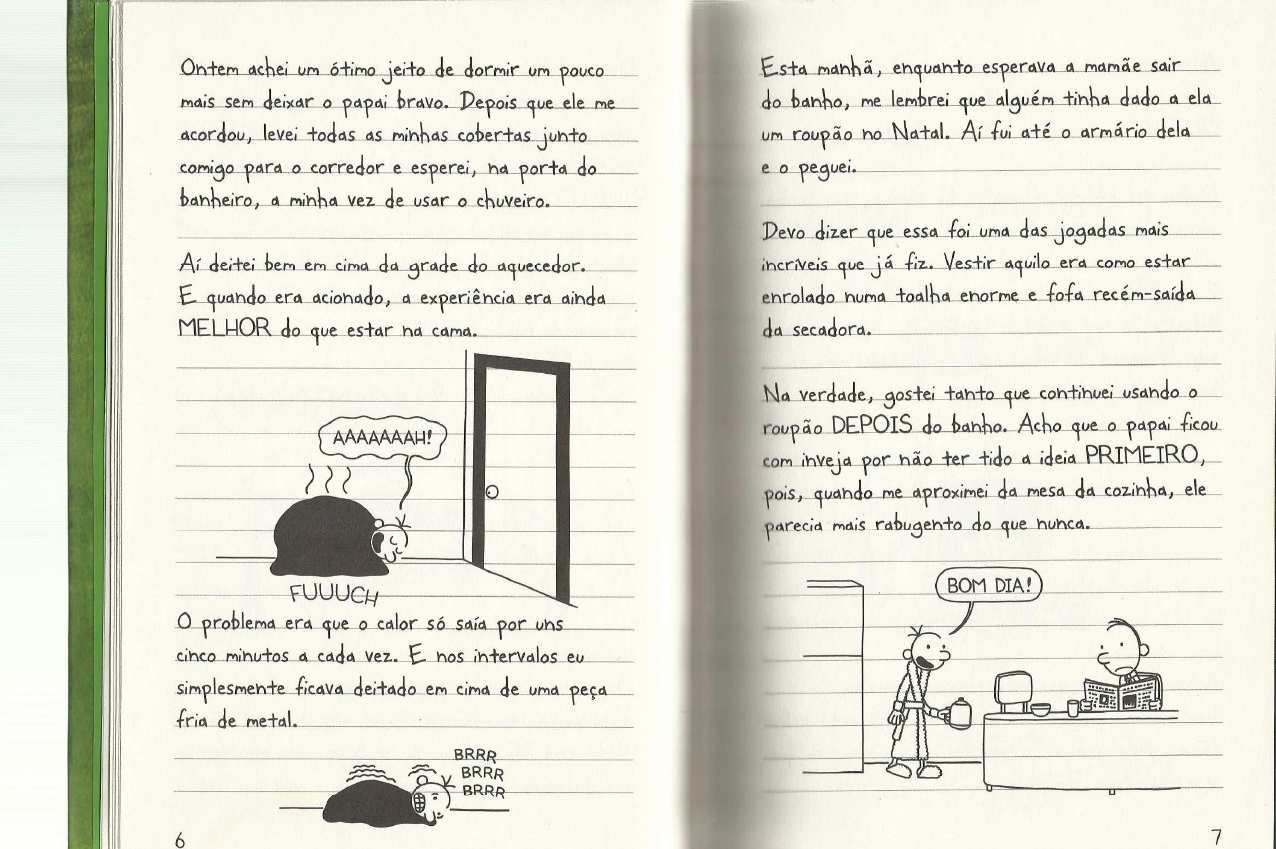 Ontem achei um ótimo jeito de dormir um pouco
mais sem deixar o papai bravo. Depois que ele me
acordou, levei todas as minhas cobertas junto
comigo para o corredor e esperei, na porta do
banheiro, a minha vez de usar o chuveiro.
Aí deitei bem em cima da grade do aquecedor.
E quando era acionado, a experiência era ainda
MELHOR do que estar na cama.
AAAAAAAH!
FUUUCH
O problema era que o calor só saía por uns
cinco minutos a cada vez. E nos intervalos eu
simplesmente ficava deitado em cima de uma peça
fria de metal.
BRRR
BRRR
BRRR
6
Esta manhã, enquanto esperava a mamãe sair
do banho, me lembrei que alguém tinha dado a ela
um roupão no Natal. Aí fui até o armário dela
e o peguei.
Devo dizer que essa foi uma das jogadas mais
incríveis que já fiz. Vestir aquilo era como estar
enrolado numa toalha enorme e fofa recém-saída
da secadora.
Na verdade, gostei tanto que continuei usando o
roupão DEPOIS do banho. Acho que o papai ficou
com inveja por não ter tido a ideia PRIMEIRO,
pois, quando me aproximei da mesa da cozinha, ele
parecia mais rabugento do que nunca.
BOM DIA!
7